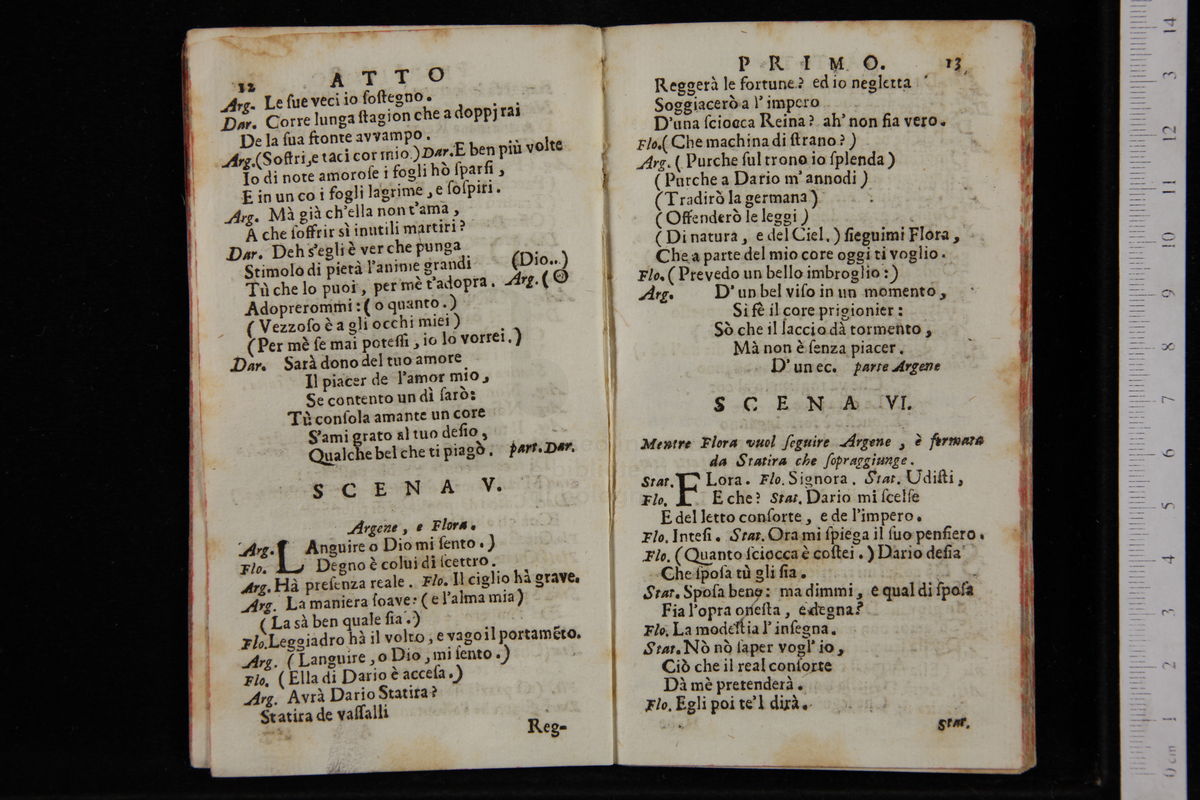 12 ATTO
Arg. Le ſue veci io ſoſtegno.
Dar. Corre lunga ſtagion che a doppj rai
De la ſua fronte avvampo.
Arg. (Soffri, e taci cor mio.) Dar. E ben più volte
Io di note amoroſe i fogli hò ſparſi,
E in un co i fogli lagrime, e ſoſpiri.
Arg. Mà già ch'ella non t'ama,
A che ſoffrir sì inutili martiri?
Dar. Deh s'egli è ver che punga
Stimolo di pietà l'anime grandi (Dio..)
Tù che lo puoi, per mè t'adopra. Arg. (O
Adoprerommi: (o quanto.)
(Vezzoſo è a gli occhi miei)
(Per mè ſe mai poteſſi, io lo vorrei.)
Dar. Sarà dono del tuo amore
Il piacer de l'amor mio,
Se contento un dì ſarò:
Tù conſola amante un core
S'ami grato al tuo deſio,
Qualche bel che ti piagò. part. Dar.
SCENA V.
Argene, e Flora.
Arg. LAnguire o Dio mi ſento.)
Flo. Degno è colui di ſcettro.
Arg. Hà preſenza reale. Flo. Il ciglio hà grave.
Arg. La maniera ſoave: (e l'alma mia)
(La sà ben quale ſia.)
Flo. Leggiadro hà il volto, e vago il portamẽto.
Arg. (Languire, o Dio, mi ſento.)
Flo. (Ella di Dario è acceſa.)
Arg. Avrà Dario Statira?
Statira de vaſſalli
Reg-
PRIMO. 13
Reggerà le fortune? ed io negletta
Soggiacerò a l'impero
D'una ſciocca Reina? ah' non ſia vero.
Flo. (Che machina di ſtrano?)
Arg. (Purche ſul trono io ſplenda)
(Purche a Dario m'annodi)
(Tradirò la germana)
(Offenderò le leggi)
(Di natura, e del Ciel.) ſieguimi Flora,
Che a parte del mio core oggi ti voglio.
Flo. (Prevedo un bello imbroglio:)
Arg. D'un bel viſo in un momento,
Si fè il core prigionier:
Sò che il laccio dà tormento,
Mà non è ſenza piacer.
D'un ec. parte Argene
SCENA VI.
Mentre Flora vuol ſeguire Argene, è fermata
da Statira che ſopraggiunge.
Stat. FLora. Flo. Signora. Stat. Udiſti,
Flo. E che? Stat. Dario mi ſcelſe
E del letto conſorte, e de l'impero.
Flo. Inteſi. Stat. Ora mi ſpiega il ſuo penſiero.
Flo. (Quanto ſciocca è coſtei.) Dario deſia
Che ſpoſa tù gli ſia.
Stat. Spoſa bene: ma dimmi, e qual di ſpoſa
Fia l'opra oneſta, e degna?
Flo. La modeſtia l'inſegna.
Stat. Nò nò ſaper vogl'io,
Ciò che il real conſorte
Dà mè pretenderà.
Flo. Egli poi te'l dirà.
Stat.